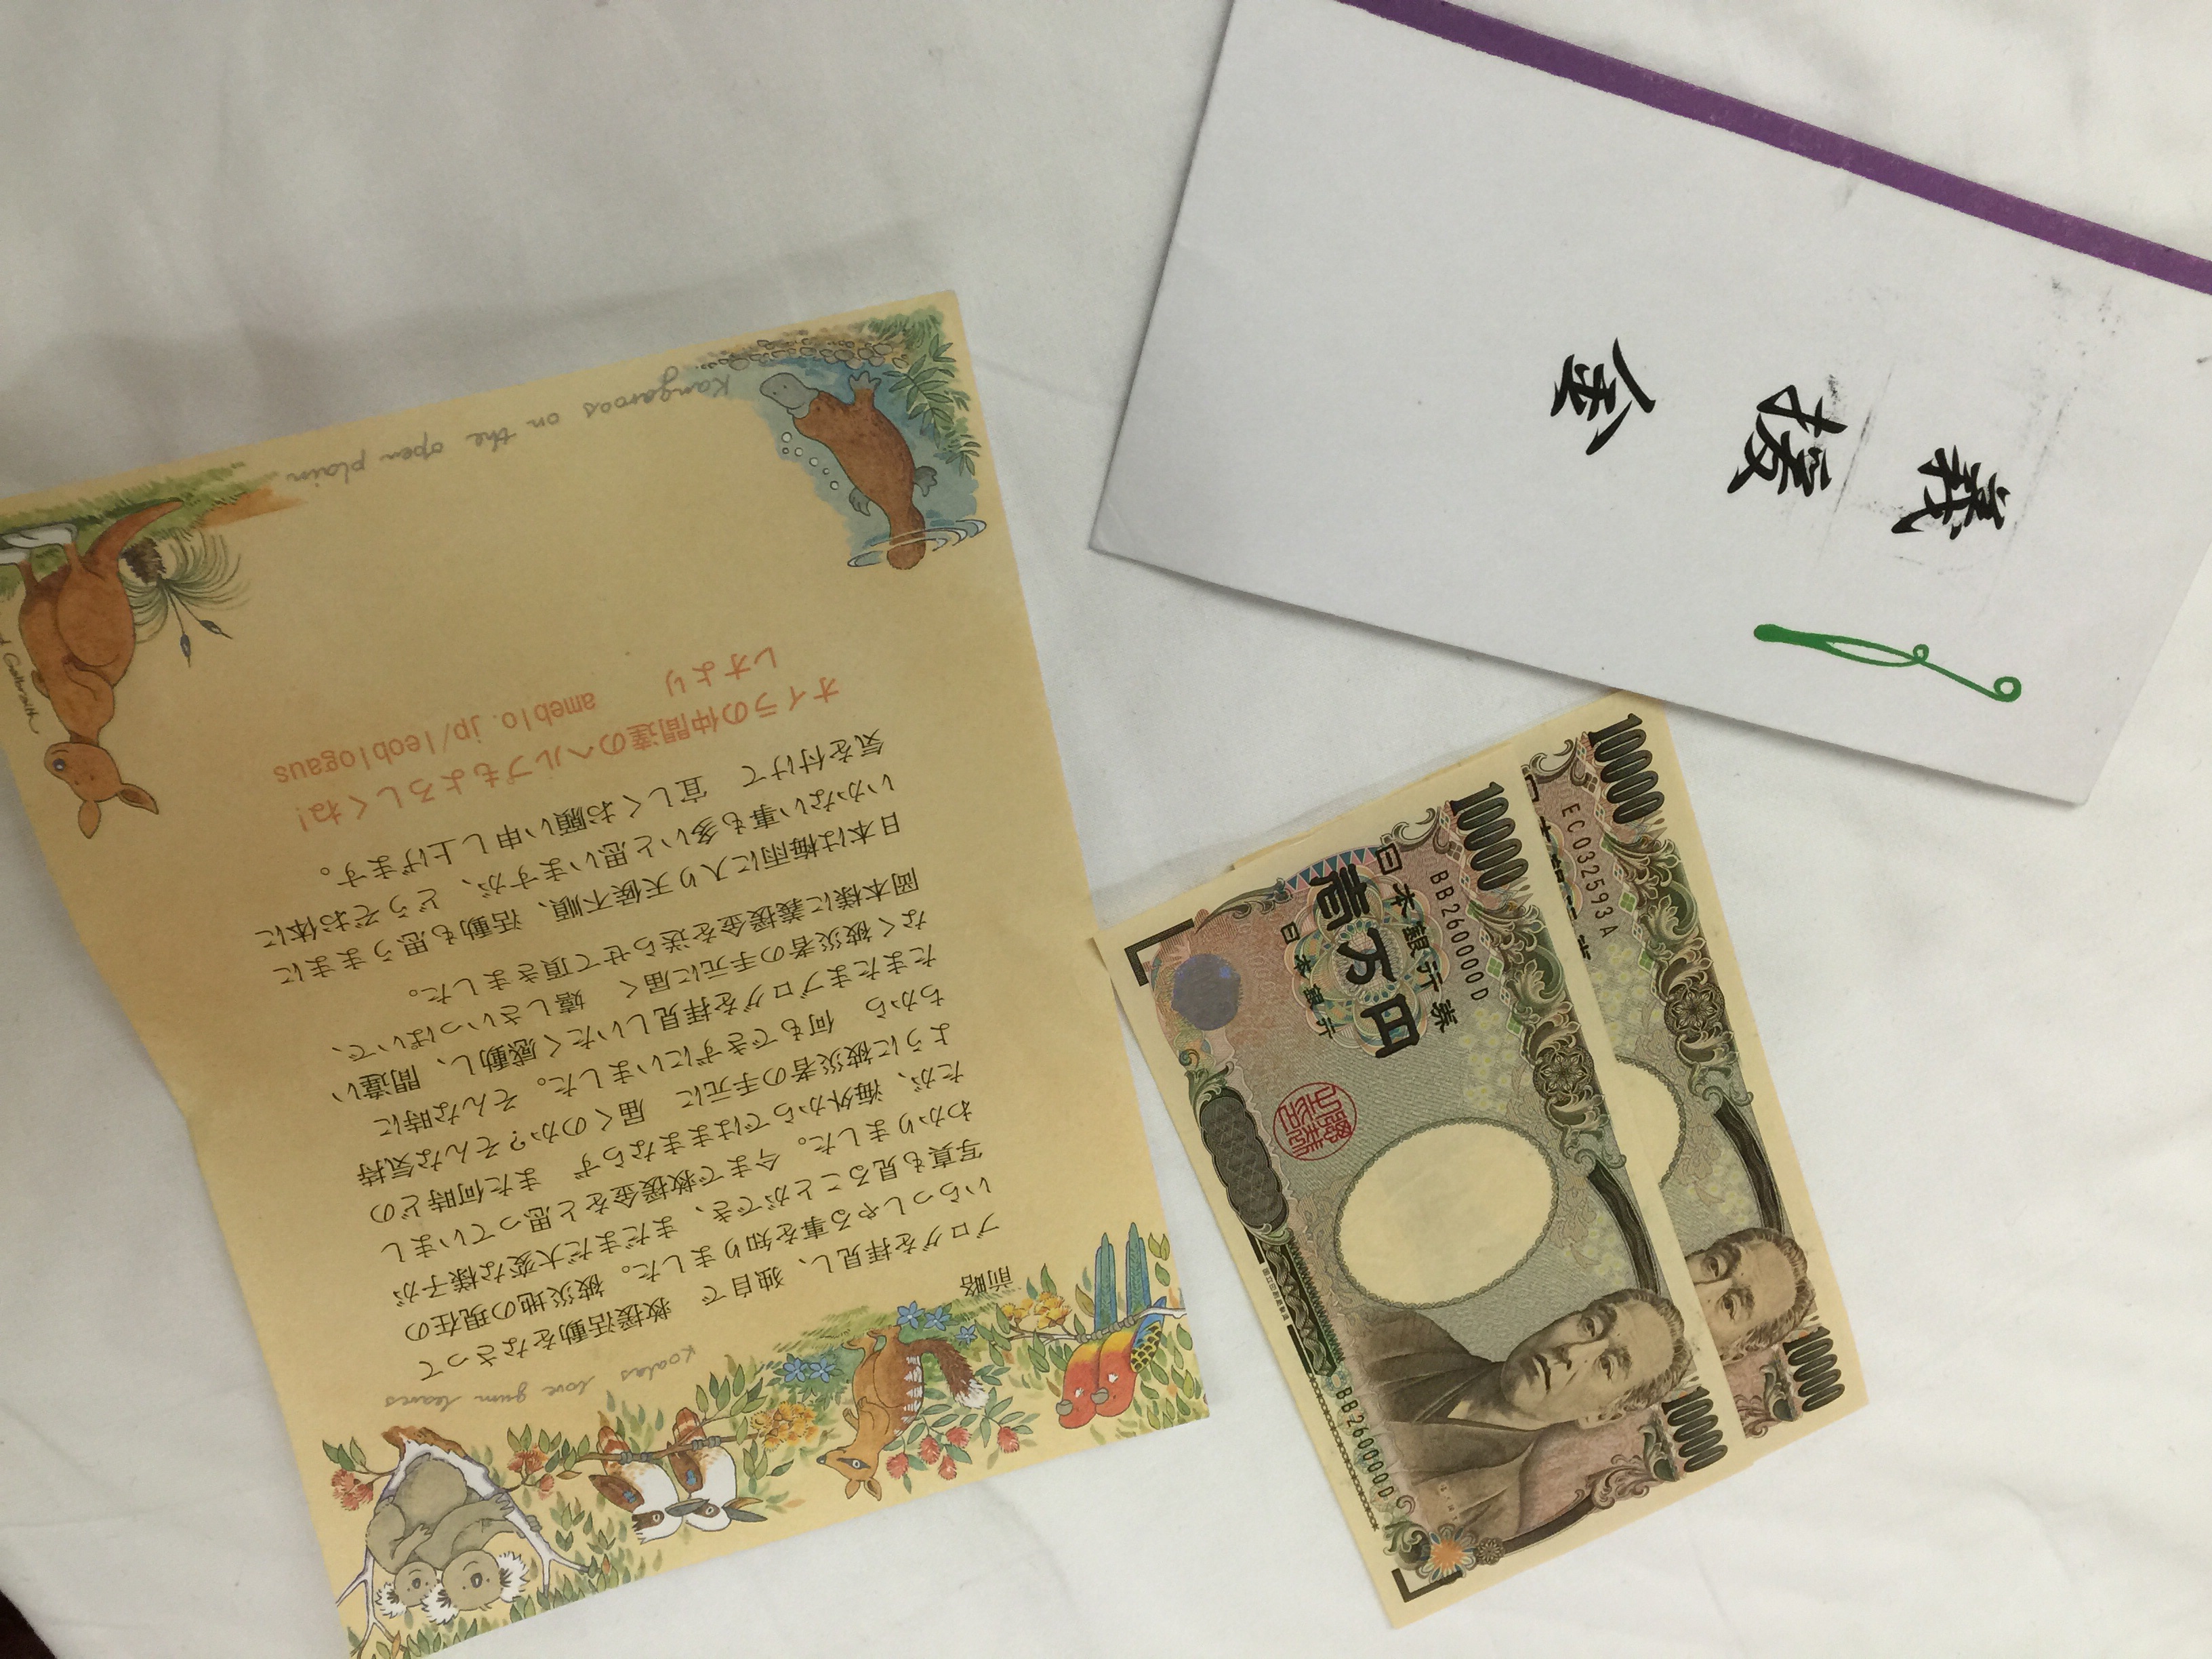 義援金
前略
ブログを拝見し、独自で 救援活動をなさって
いらっしゃる事を知りました。被災地の現在の
写真も見ることができ、まだまだ大変な様子が
わかりました。今まで救援金をと思っていまし
たが、海外からではままならず また何時どの
ように被災者の手元に 届くのか?そんな気持
ちから 何もできずにいました。そんな時に
たまたまブログを拝見しいたく感動し、間違い
なく被災者の手元に届く 嬉しさいっぱいで、
岡本様に義援金を送らせて頂きました。
日本は梅雨に入り天候不順、活動も思うままに
いかない事も多いと思いますが、どうぞお体に
気を付けて 宜しくお願い申し上げます。
オイラの仲間達のヘルプもよろしくね!
レオより ameblo.jp/leoblogaus
koalas love gum leaves
kangaroos on the open plain...
Galbraith
10000
BB260000D
日本銀行券
壱万円
日本銀行
BB260000D
10000
10000
EC032593A
10000